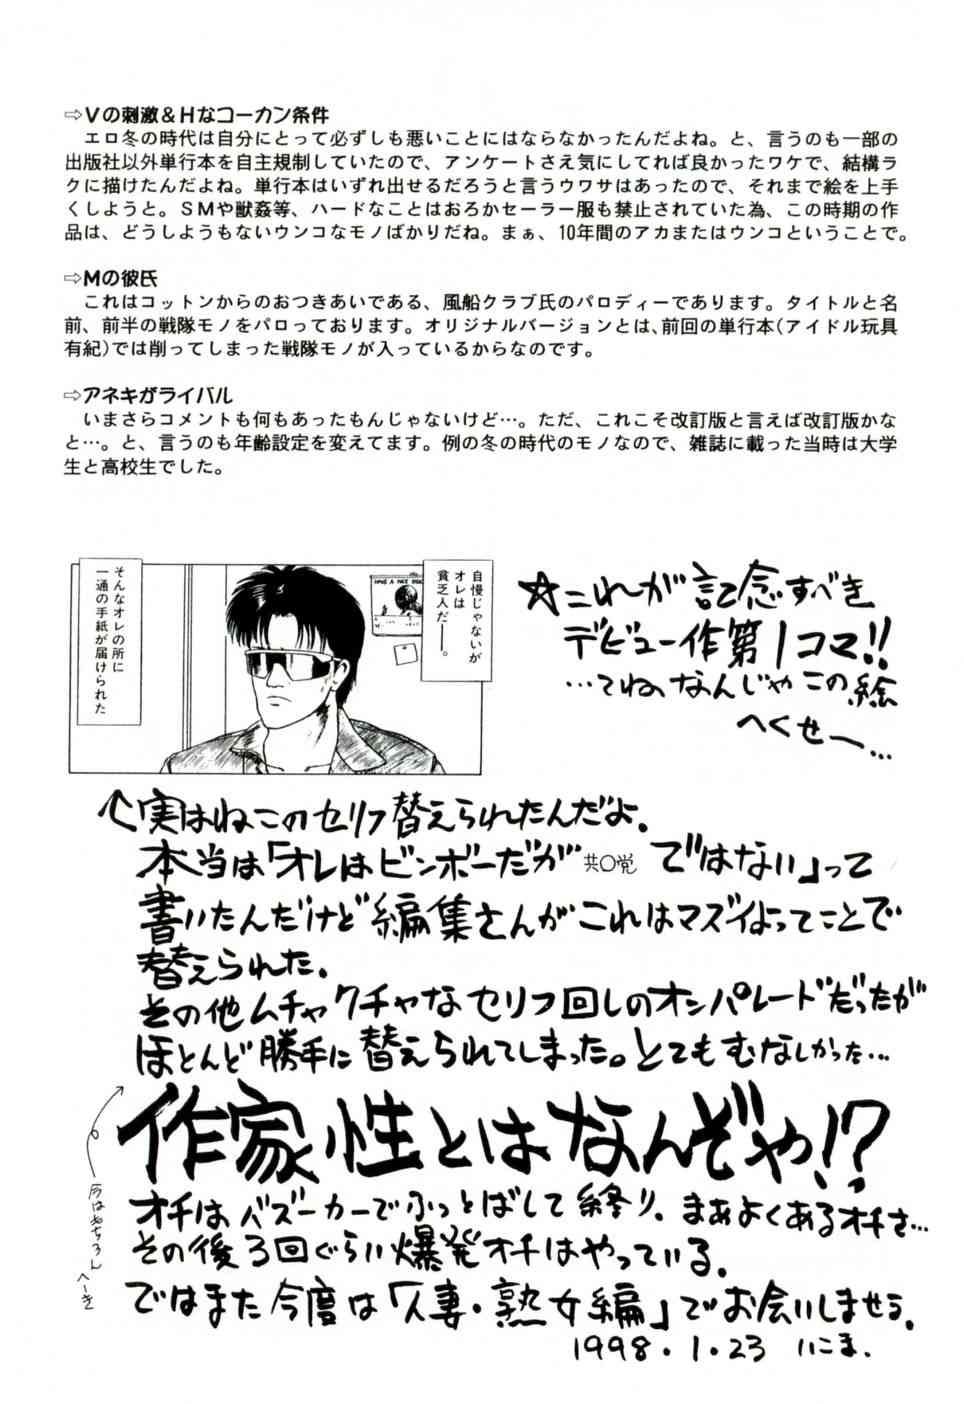 ⇨Ｖの刺激＆Ｈなコーカン条件
エロ冬の時代は自分にとって必ずしも悪いことにはならなかったんだよね。と、言うのも一部の
出版社以外単行本を自主規制していたので、アンケートさえ気にしてれば良かったワケで、結構ラ
クに描けたんだよね。単行本はいずれ出せるだろうと言うウワサはあったので、それまで絵を上手
くしようと。ＳＭや獣姦等、ハードなことはおろかセーラー服も禁止されていた為、この時期の作
品は、どうしようもないウンコなモノばかりだね。まぁ、10年間のアカまたはウンコということで。
⇨Ｍの彼氏
これはコットンからのおつきあいである、風船クラブ氏のパロディーであります。タイトルと名
前、前半の戦隊モノをパロっております。オリジナルバージョンとは、前回の単行本(アイドル玩具
有紀)では削ってしまった戦隊モノが入っているからなのです。
⇨アネキがライバル
いまさらコメントも何もあったもんじゃないけど…。ただ、これこそ改訂版と言えば改訂版かな
と…。と、言うのも年齢設定を変えてます。例の冬の時代のモノなので、雑誌に載った当時は大学
生と高校生でした。
自慢じゃないが
オレは
貧乏人だ──。
そんなオレの所に
一通の手紙が届けられた
☆これが記念すべき
デビュー作第1コマ!!
…てねのなんじゃこの絵
へくせー…
↑実はねこのセリフ替えられたんだよ。
本当は「オレはビンボーだが共〇党ではない」って
書いたんだけど編集さんがこれはマズイよってことで
替えられた。
その他ムチャクチャなセリフ回しのオンパレードだったが
ほとんど勝手に替えられてしまった。とてもむなしかった…
作家性とはなんぞや!?
今はもちろん
へーき
オチはバズーカーでふっとばして終り。まあよくあるオチさ…
その後3回ぐらい爆発オチはやっている。
ではまた今度は「人妻・熟女編」でお会いしませう。
1998.1.23 いこま.